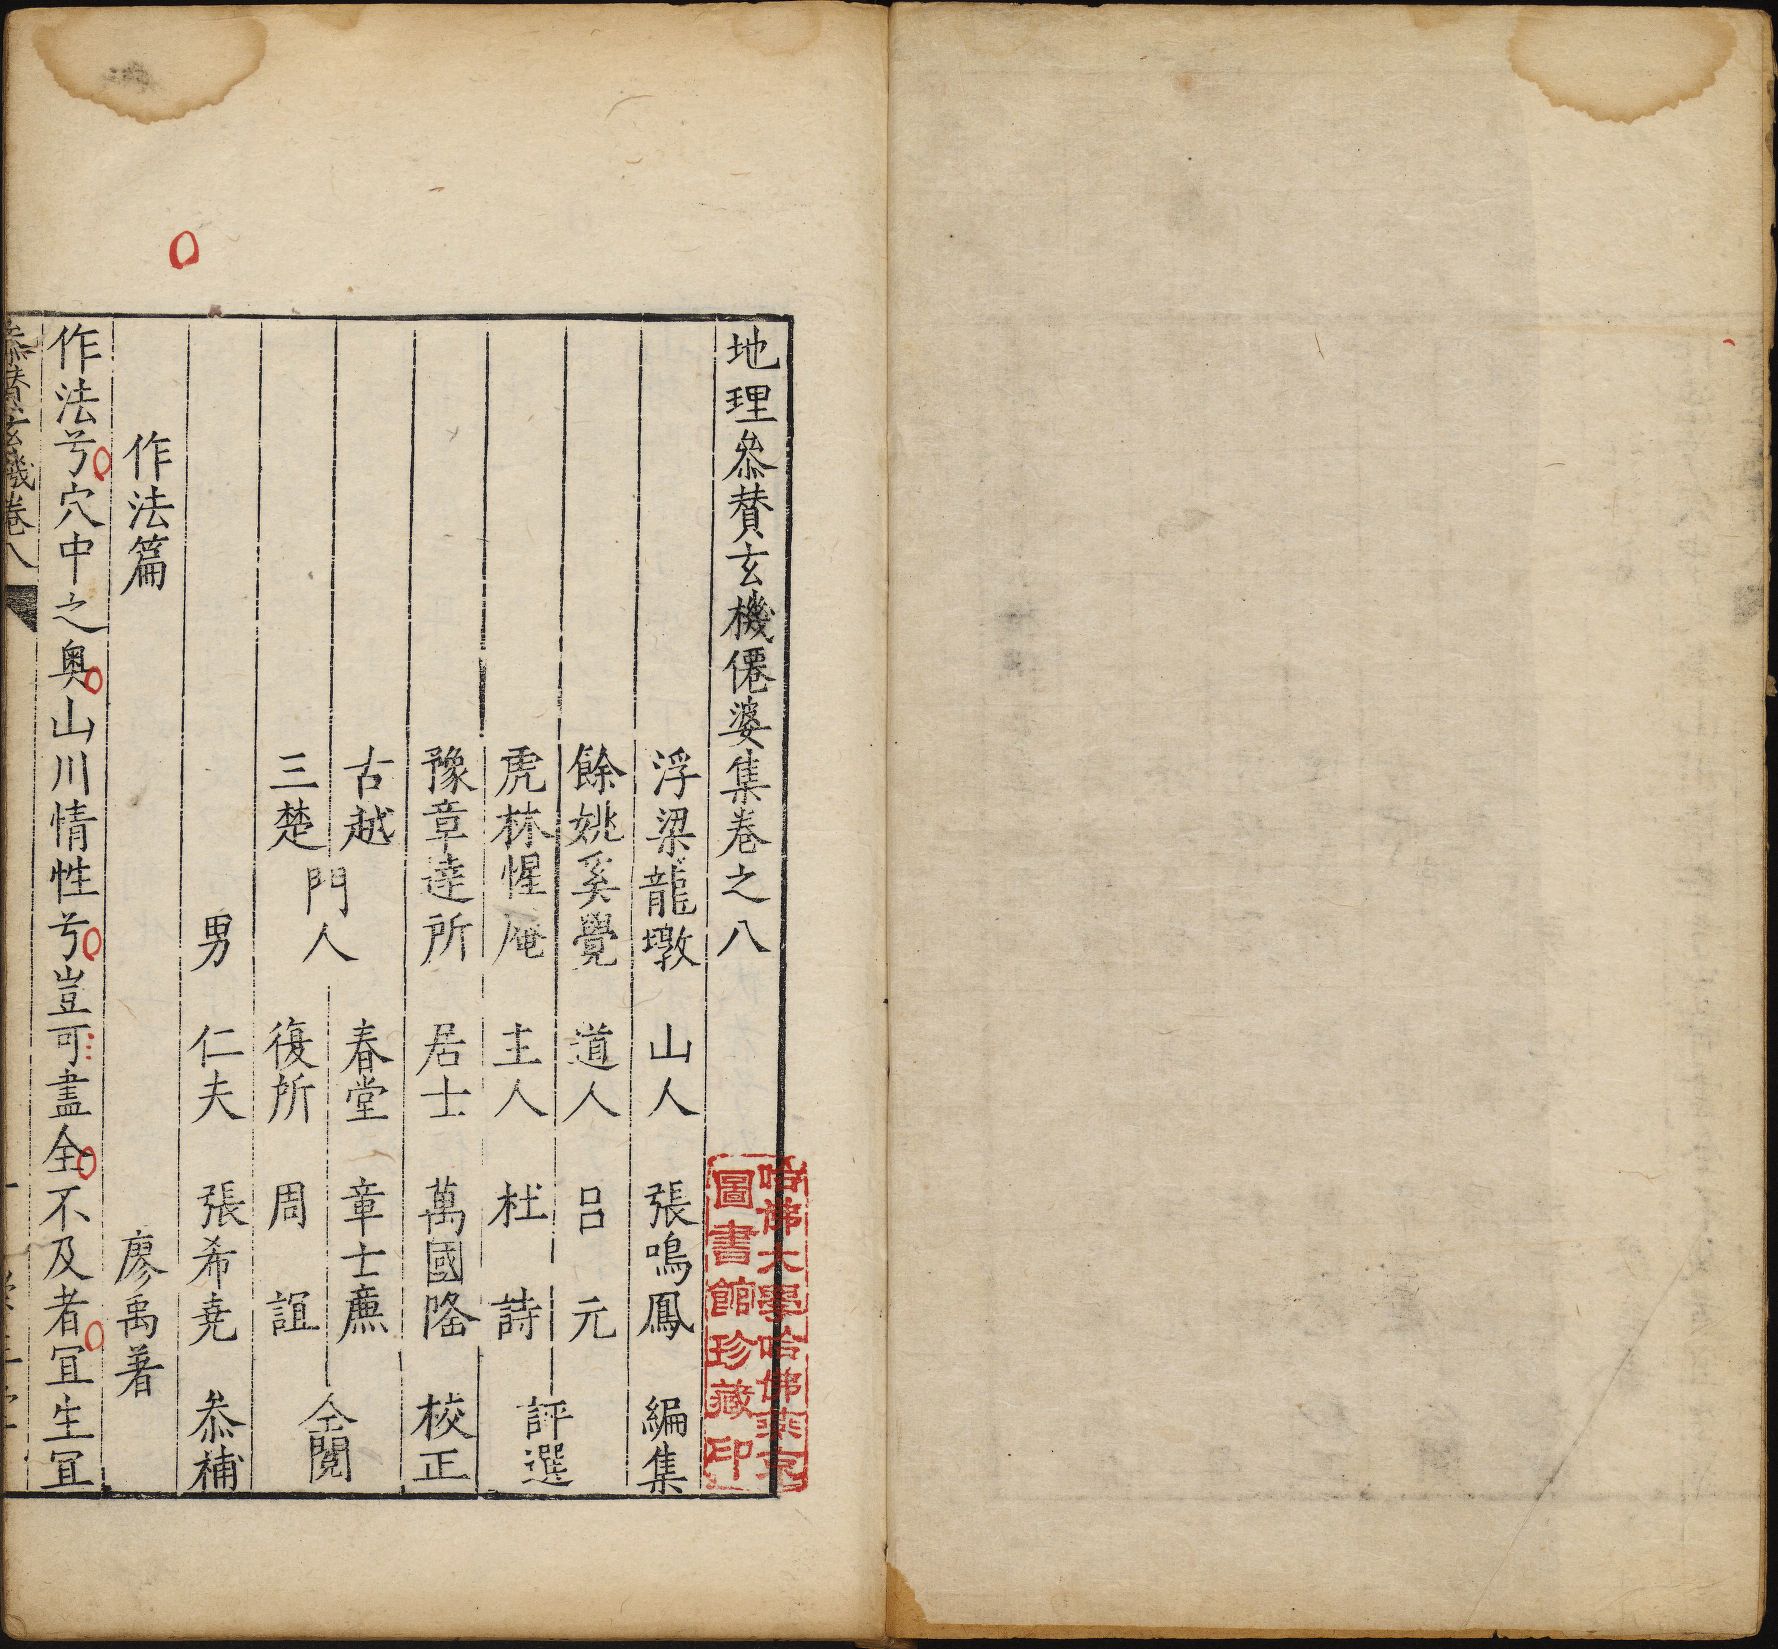 地理叅賛玄機僊婆集卷之八
浮梁龍墩 山人 張鳴鳳 編集
餘姚奚覺 道人 呂元
虎林惺庵 主人 杜詩 評選
豫章逹所 居士 萬國隆 校正
古越 春堂 章士薦
三楚 門人 復所 周誼 仝閱
男 仁夫 張希堯 叅補
作法篇 廖禹著
作法兮穴中之奧山川情性兮豈可盡全不及者宜生宜
叅賛玄機卷八
哈佛大學哈佛燕京
圖書館珍藏印